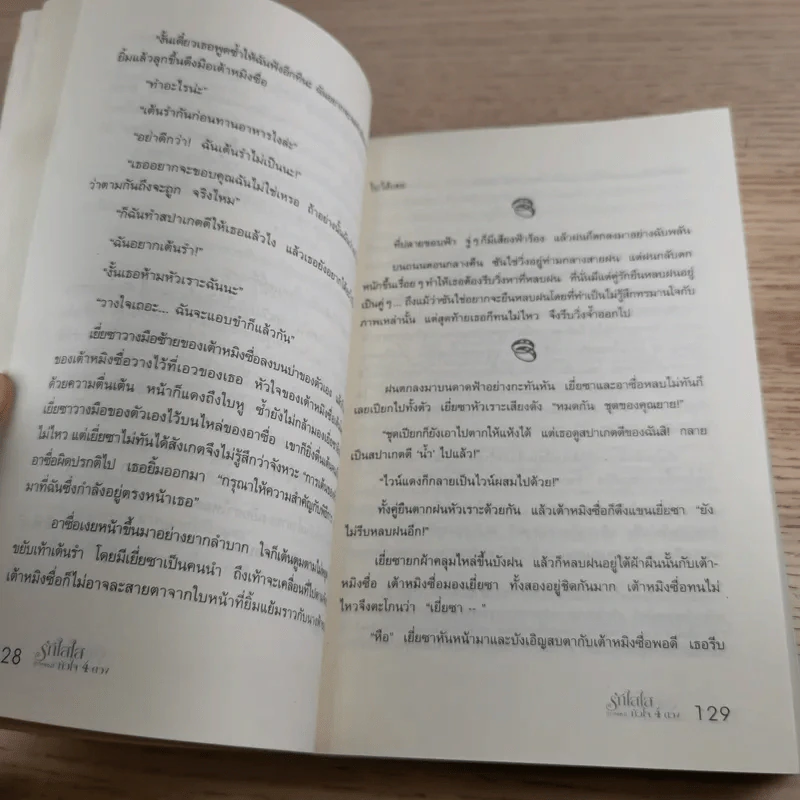 "งั้นเดี๋ยวเธอพูดซ้ำให้ฉันฟังอีกทีนะ
ยิ้มแล้วลุกขึ้นดึงมือเต้าหมิงซื่อ
"ทำอะไรน่ะ"
"เต้นรำกันก่อนทานอาหารไงล่ะ"
"อย่าดีกว่า! ฉันเต้นรำไม่เป็นนะ!"
"เธออยากจะขอบคุณฉันไม่ใช่เหรอ ถ้าอย่างนั้น
ว่าตามกันถึงจะถูก จริงไหม"
"ก็ฉันทำสปาเกตตีให้เธอแล้วไง แล้วเธอยังอยาก
"ฉันอยากเต้นรำ!"
"งั้นเธอห้ามหัวเราะฉันนะ"
"วางใจเถอะ... ฉันจะแอบขำก็แล้วกัน"
เยี่ยซาวางมือซ้ายของเต้าหมิงซื่อลงบนบ่าของตัวเอง
ของเต้าหมิงซื่อวางไว้ที่เอวของเธอ หัวใจของเต้าหมิงซื่อ
ด้วยความตื่นเต้น หน้าก็แดงถึงใบหู ซ้ำยังไม่กล้ามอง
เยี่ยซาวางมือของตัวเองไว้บนไหล่ของอาซื่อ เขาก็ยิ่งตื่นเต้น
ไม่ไหว แต่เยี่ยซาไม่ทันได้สังเกตจึงไม่รู้สึกว่าจังหวะ
อาซื่อผิดปรกติไป เธอยิ้มออกมา "กรุณาให้ความสำคัญกับ
มาที่ฉันซึ่งกำลังอยู่ตรงหน้าเธอ"
อาซื่อเงยหน้าขึ้นมาอย่างยากลำบาก ใจก็เต้นตูมตาม
ขยับเท้าเต้นรำ โดยมีเยี่ยซาเป็นคนนำ ถึงเท้าจะเคลื่อนที่ไป
เต้าหมิงซื่อก็ไม่อาจละสายตาจากใบหน้าที่ยิ้มแย้มราวกับนาง
28 รักใสใส หัวใจ 4 ดวง
ที่ปลายขอบฟ้า จู่ๆ ก็มีเสียงฟ้าร้อง แล้วฝนก็ตกลงมาอย่างฉับพลัน
บนถนนตอนกลางคืน ซันไช่วิ่งอยู่ท่ามกลางสายฝน แต่ฝนกลับตก
หนักขึ้นเรื่อยๆ ทำให้เธอต้องรีบวิ่งหาที่หลบฝน ที่นั่นมีแต่คู่รักยืนหลบฝนอยู่
เป็นคู่ๆ... ถึงแม้ว่าซันไช่อยากจะยืนหลบฝนโดยที่ทำเป็นไม่รู้สึกทรมานใจกับ
ภาพเหล่านั้น แต่สุดท้ายเธอก็ทนไม่ไหว จึงรีบวิ่งจ้ำออกไป
ฝนตกลงมาบนดาดฟ้าอย่างกะทันหัน เยี่ยซาและอาซื่อหลบไม่ทันก็
เลยเปียกไปทั้งตัว เยี่ยซาหัวเราะเสียงดัง "หมดกัน ชุดของคุณยาย!"
"ชุดเปียกก็ยังเอาไปตากให้แห้งได้ แต่เธอดูสปาเกตตีของฉันสิ! กลาย
เป็นสปาเกตตี 'น้ำ' ไปแล้ว!"
"ไวน์แดงก็กลายเป็นไวน์ผสมไปด้วย!"
ทั้งคู่ยืนตากฝนหัวเราะด้วยกัน แล้วเต้าหมิงซื่อก็ดึงแขนเยี่ยซา "ยัง
ไม่รีบหลบฝนอีก!"
เยี่ยซายกผ้าคลุมไหล่ขึ้นบังฝน แล้วก็หลบฝนอยู่ใต้ผ้าผืนนั้นกับเต้า-
หมิงซื่อ เต้าหมิงซื่อมองเยี่ยซา ทั้งสองอยู่ชิดกันมาก เต้าหมิงซื่อทนไม่
ไหวจึงตะโกนว่า "เยี่ยซา -- "
"หือ" เยี่ยซาหันหน้ามาและบังเอิญสบตากับเต้าหมิงซื่อพอดี เธอรีบ
รักใสใส หัวใจ 4 ดวง 129